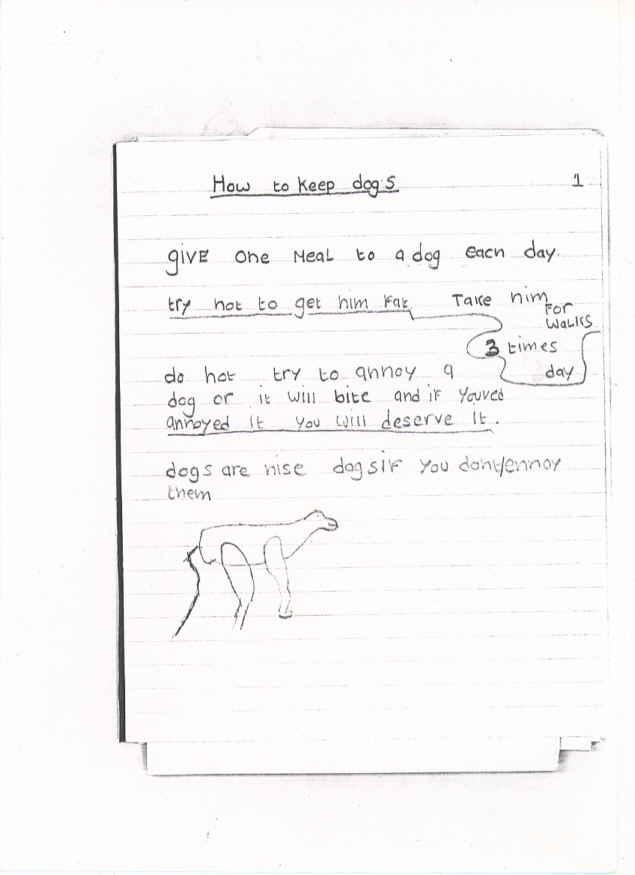 How to keep dogs 1
giVE one Meal to a dog each day.
try not to get him fat Take him For
Walks
3 times
day
do not try to annoy a
dog or it will bite and if youved
annoyed it you will deserve it.
dogs are nise dogs if you dont/ennoy
them